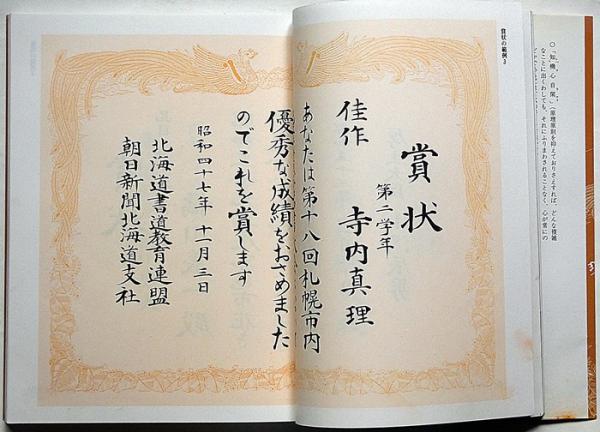 〇「知機心自閑」（原理原則を抑えておりさえすれば、どんな複雑
なことに出くわしても、それにふりまわされることなく、心が常にの
賞状の範例 3
賞状
第二学年
寺内真理
佳作
あなたは第十八回札幌市内
優秀な成績をおさめました
のでこれを賞します
昭和四十七年十一月三日
北海道書道教育連盟
朝日新聞北海道支社